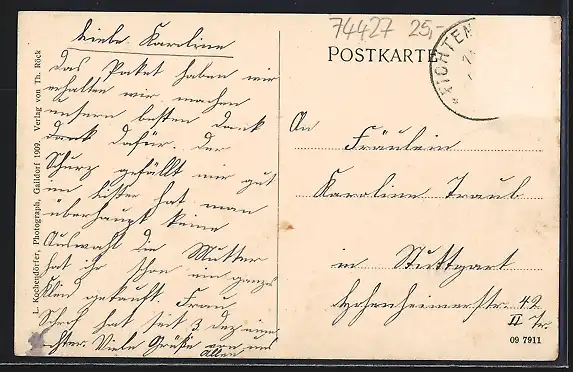 Liebe Karoline
Das Paket haben wir
erhalten wir machen
unsern besten Dank
dank dafür. Der
Schurz gefällt mir gut
im hat man
überhaupt keine
Auswahl die Mutter
hat ihr schon ein ganzes
Kleid gekauft. Frau
hat seit 3 Dez eine
Tochter. Viele Grüße von uns
allen
L. Kochendörfer, Photograph, Gaildorf 1909. Verlag von Th. Röck
74427 25,-
POSTKARTE
FICHTEN
An
Fräulein
Karoline Traub
in Stuttgart
Hohenheimerstr. 42
II Tr.
09 7911